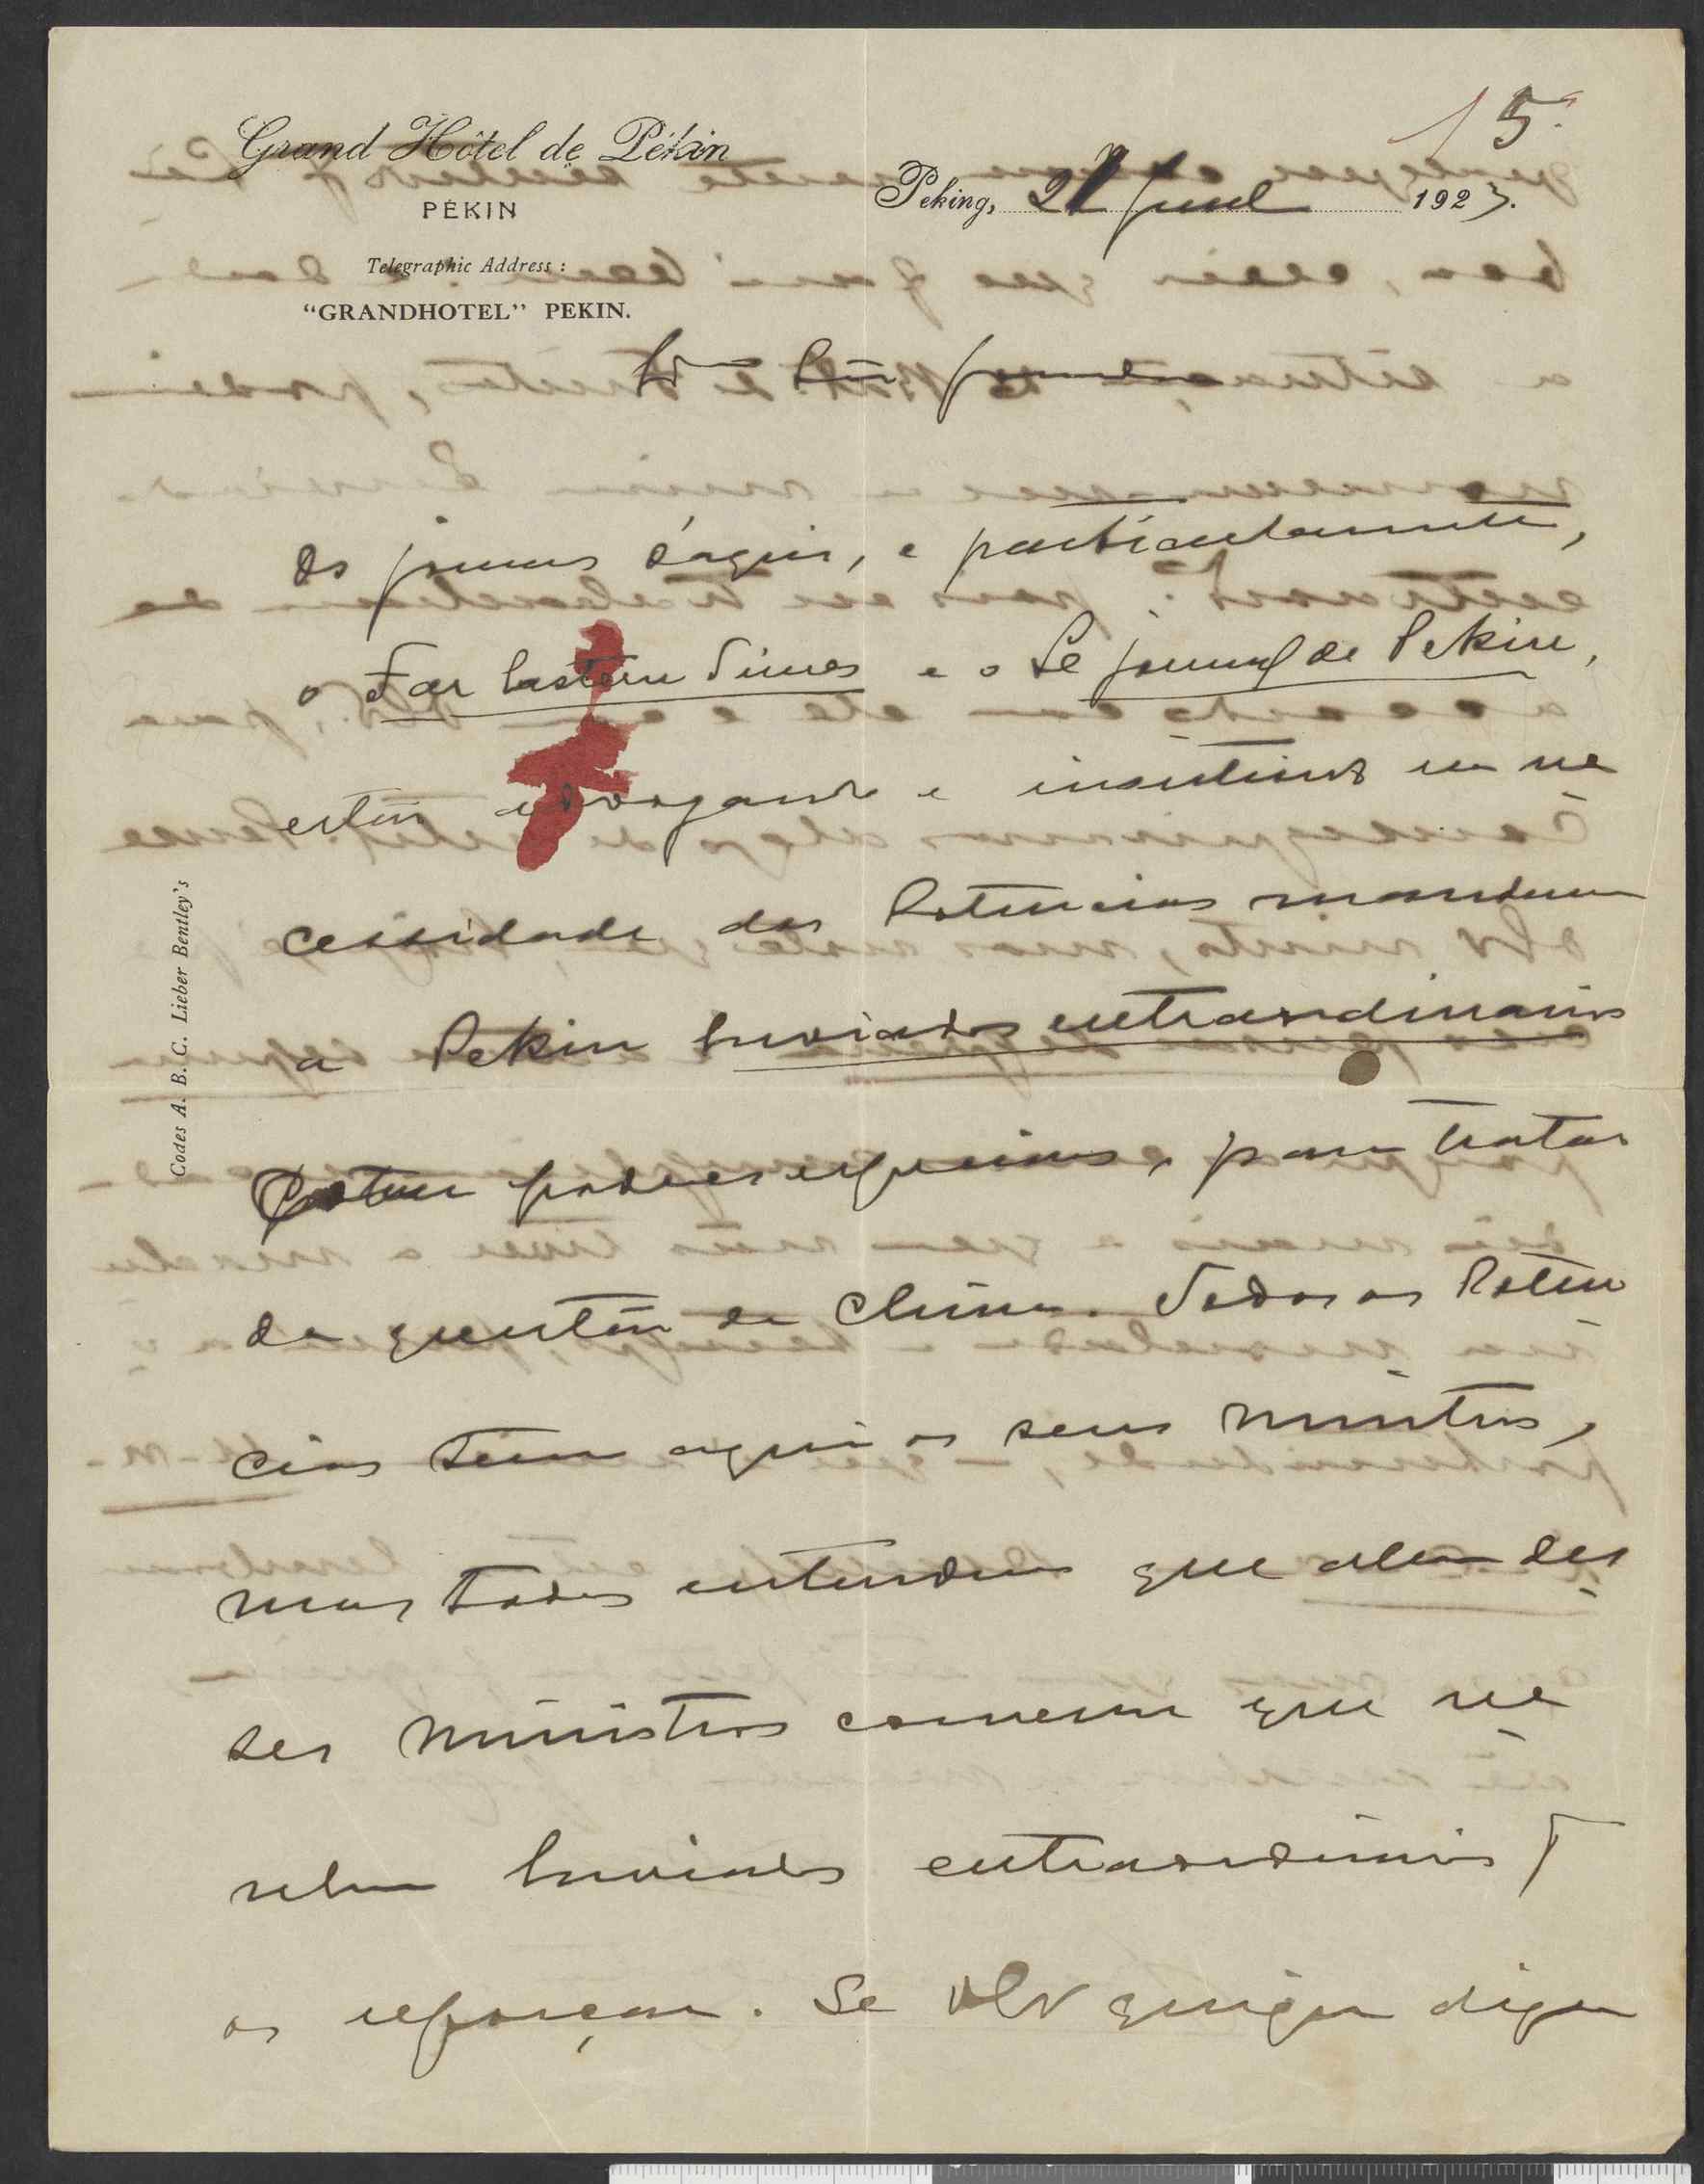 15.
Grand Hôtel de Pékin
PÉKIN
Telegraphic Address :
"GRANDHOTEL" PEKIN.
Peking, 21 1923.
Os jornaes d'aqui, e particularmente,
o Far Eastern Times e o Le journal de Pekin,
estão advogando e insistindo na ne
cessidade das Potencias mandarem
a Pekin Enviados extraordinarios
com poderes especiaes, para tratar
da questão da China. Todas as Poten
cias teem aqui os seus Ministros,
mas todos entendem que alem des
ses Ministros convem que ve
nham Enviados extraordinarios
os reforçar. Se quizer diga
Codes A. B. C. Lieber Bentley's